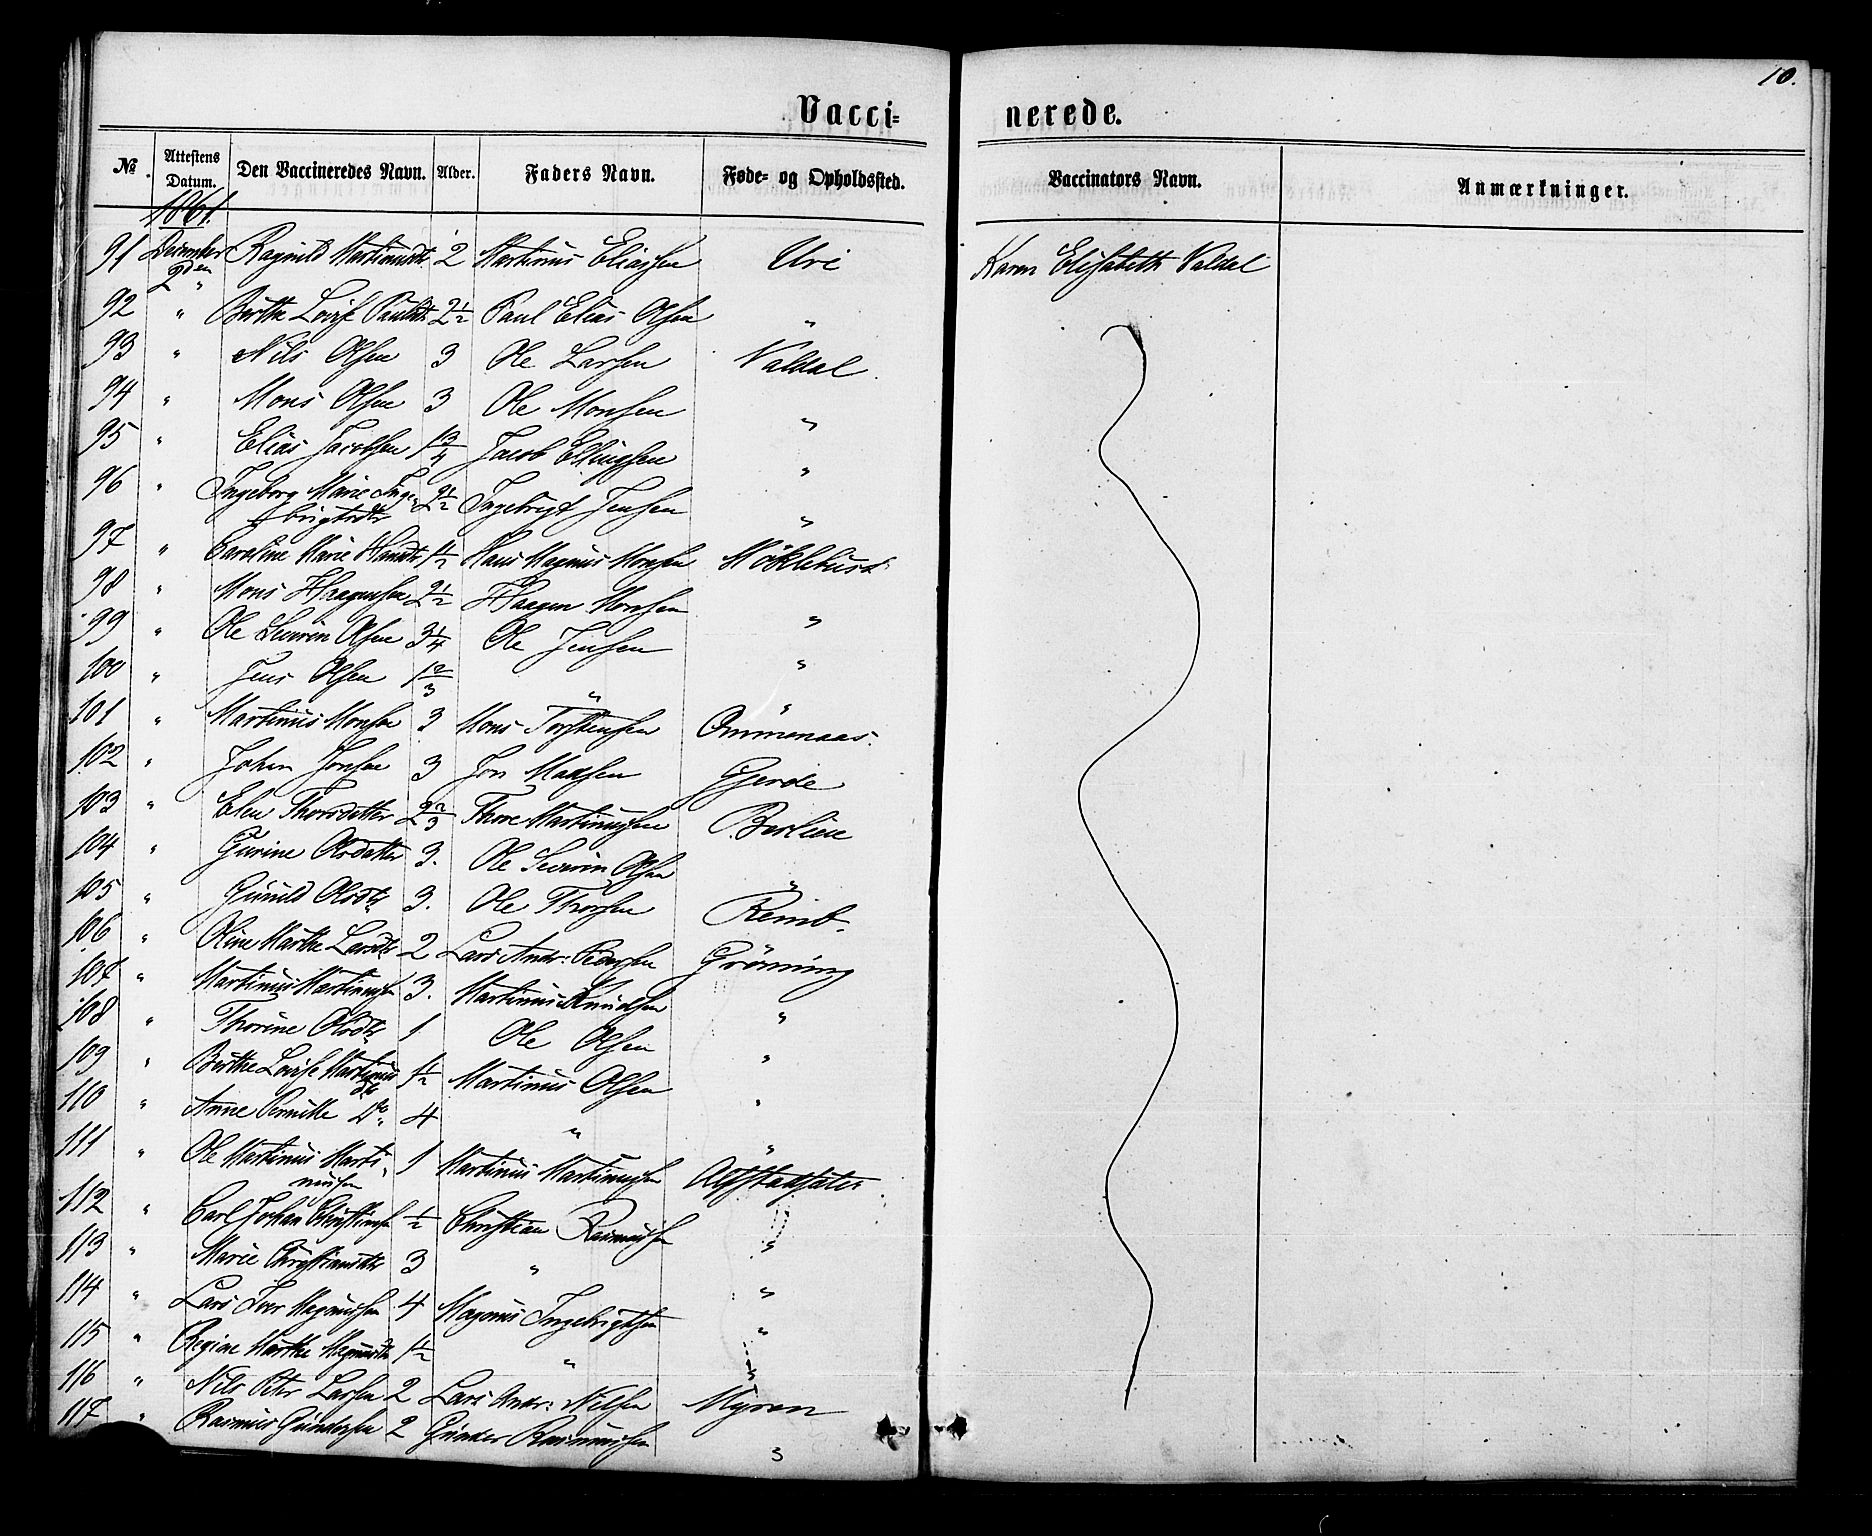 10.
Vacci= nerede.
№ Attestens Datum. Den Vaccineredes Navn. Alder. Faders Navn. Føde= og Opholdssted. Vaccinators Navn. Anmærkninger.
1861.
91 December 2den Ragnild Martinusdtr. 2 Martinus Eliassen Uri Karen Elisabeth Valdal
" 
92 " Birthe Lovise Paulsdtr 2 1/2 Paul Elias Olsen "
93 " Nils Olsen 3 Ole Larsen Valdal.
94 " Mons Olsen 3 Ole Monsen "
95 " Elias Jacobsen 1 3/4 Jacob Ellingsen "
96 " Ingeborg Marie Inge- 2 1/2 Ingebrigt Jensen "
brigtsdtr
97 " Caroline Marie Hansdtr 1 1/2 Hans Magnus Monsen Møklebust
98 " Mons Haagensen 2 1/2 Haagen Monsen "
99 " Ole Severin Olsen 3 1/4 Ole Jensen "
100 " Jens Olsen 1 2/3 " "
101 " Martinus Monsen 3 Mons Torstensen Ommenaas.
102 " Johan Jonsen 3 Jon Madsen Gjerde
103 " Elen Thorsdatter 2 2/3 Thore Martinussen Berlien
104 " Gurine Olsdatter 3. Ole Severin Olsen "
105 " Gunild Olsdtr 3. Ole Thorsen Remb.
106 " Oline Marthe Larsdtr 2 Lars Andr: Pedersen Grønning
107 " Martinus Martinussen 3. Martinus Knudsen "
108 " Thorine Olsdtr 1 Ole Olsen "
109 " Birthe Lovise Martinus 1 1/2 Martinus Olsen "
dtr
110 " Anne Pernille Do 4 " "
111 " Ole Martinus Marti- 1 Martinus Martinussen Alfstadsæter
nussen
112 " Carl Johan Christiansen 1/2 Christian Rasmussen "
113 " Marie Christiansdtr 3 " "
114 " Lars Iver Magnussen 4 Magnus Ingebrigtsen "
115 " Regine Marthe Magnusdtr 1 1/2 " "
116 " Nils Peter Larsen 2 Lars Andr: Nilsen Myren
117 " Rasmus Gundersen 2 Gunder Rasmussen "